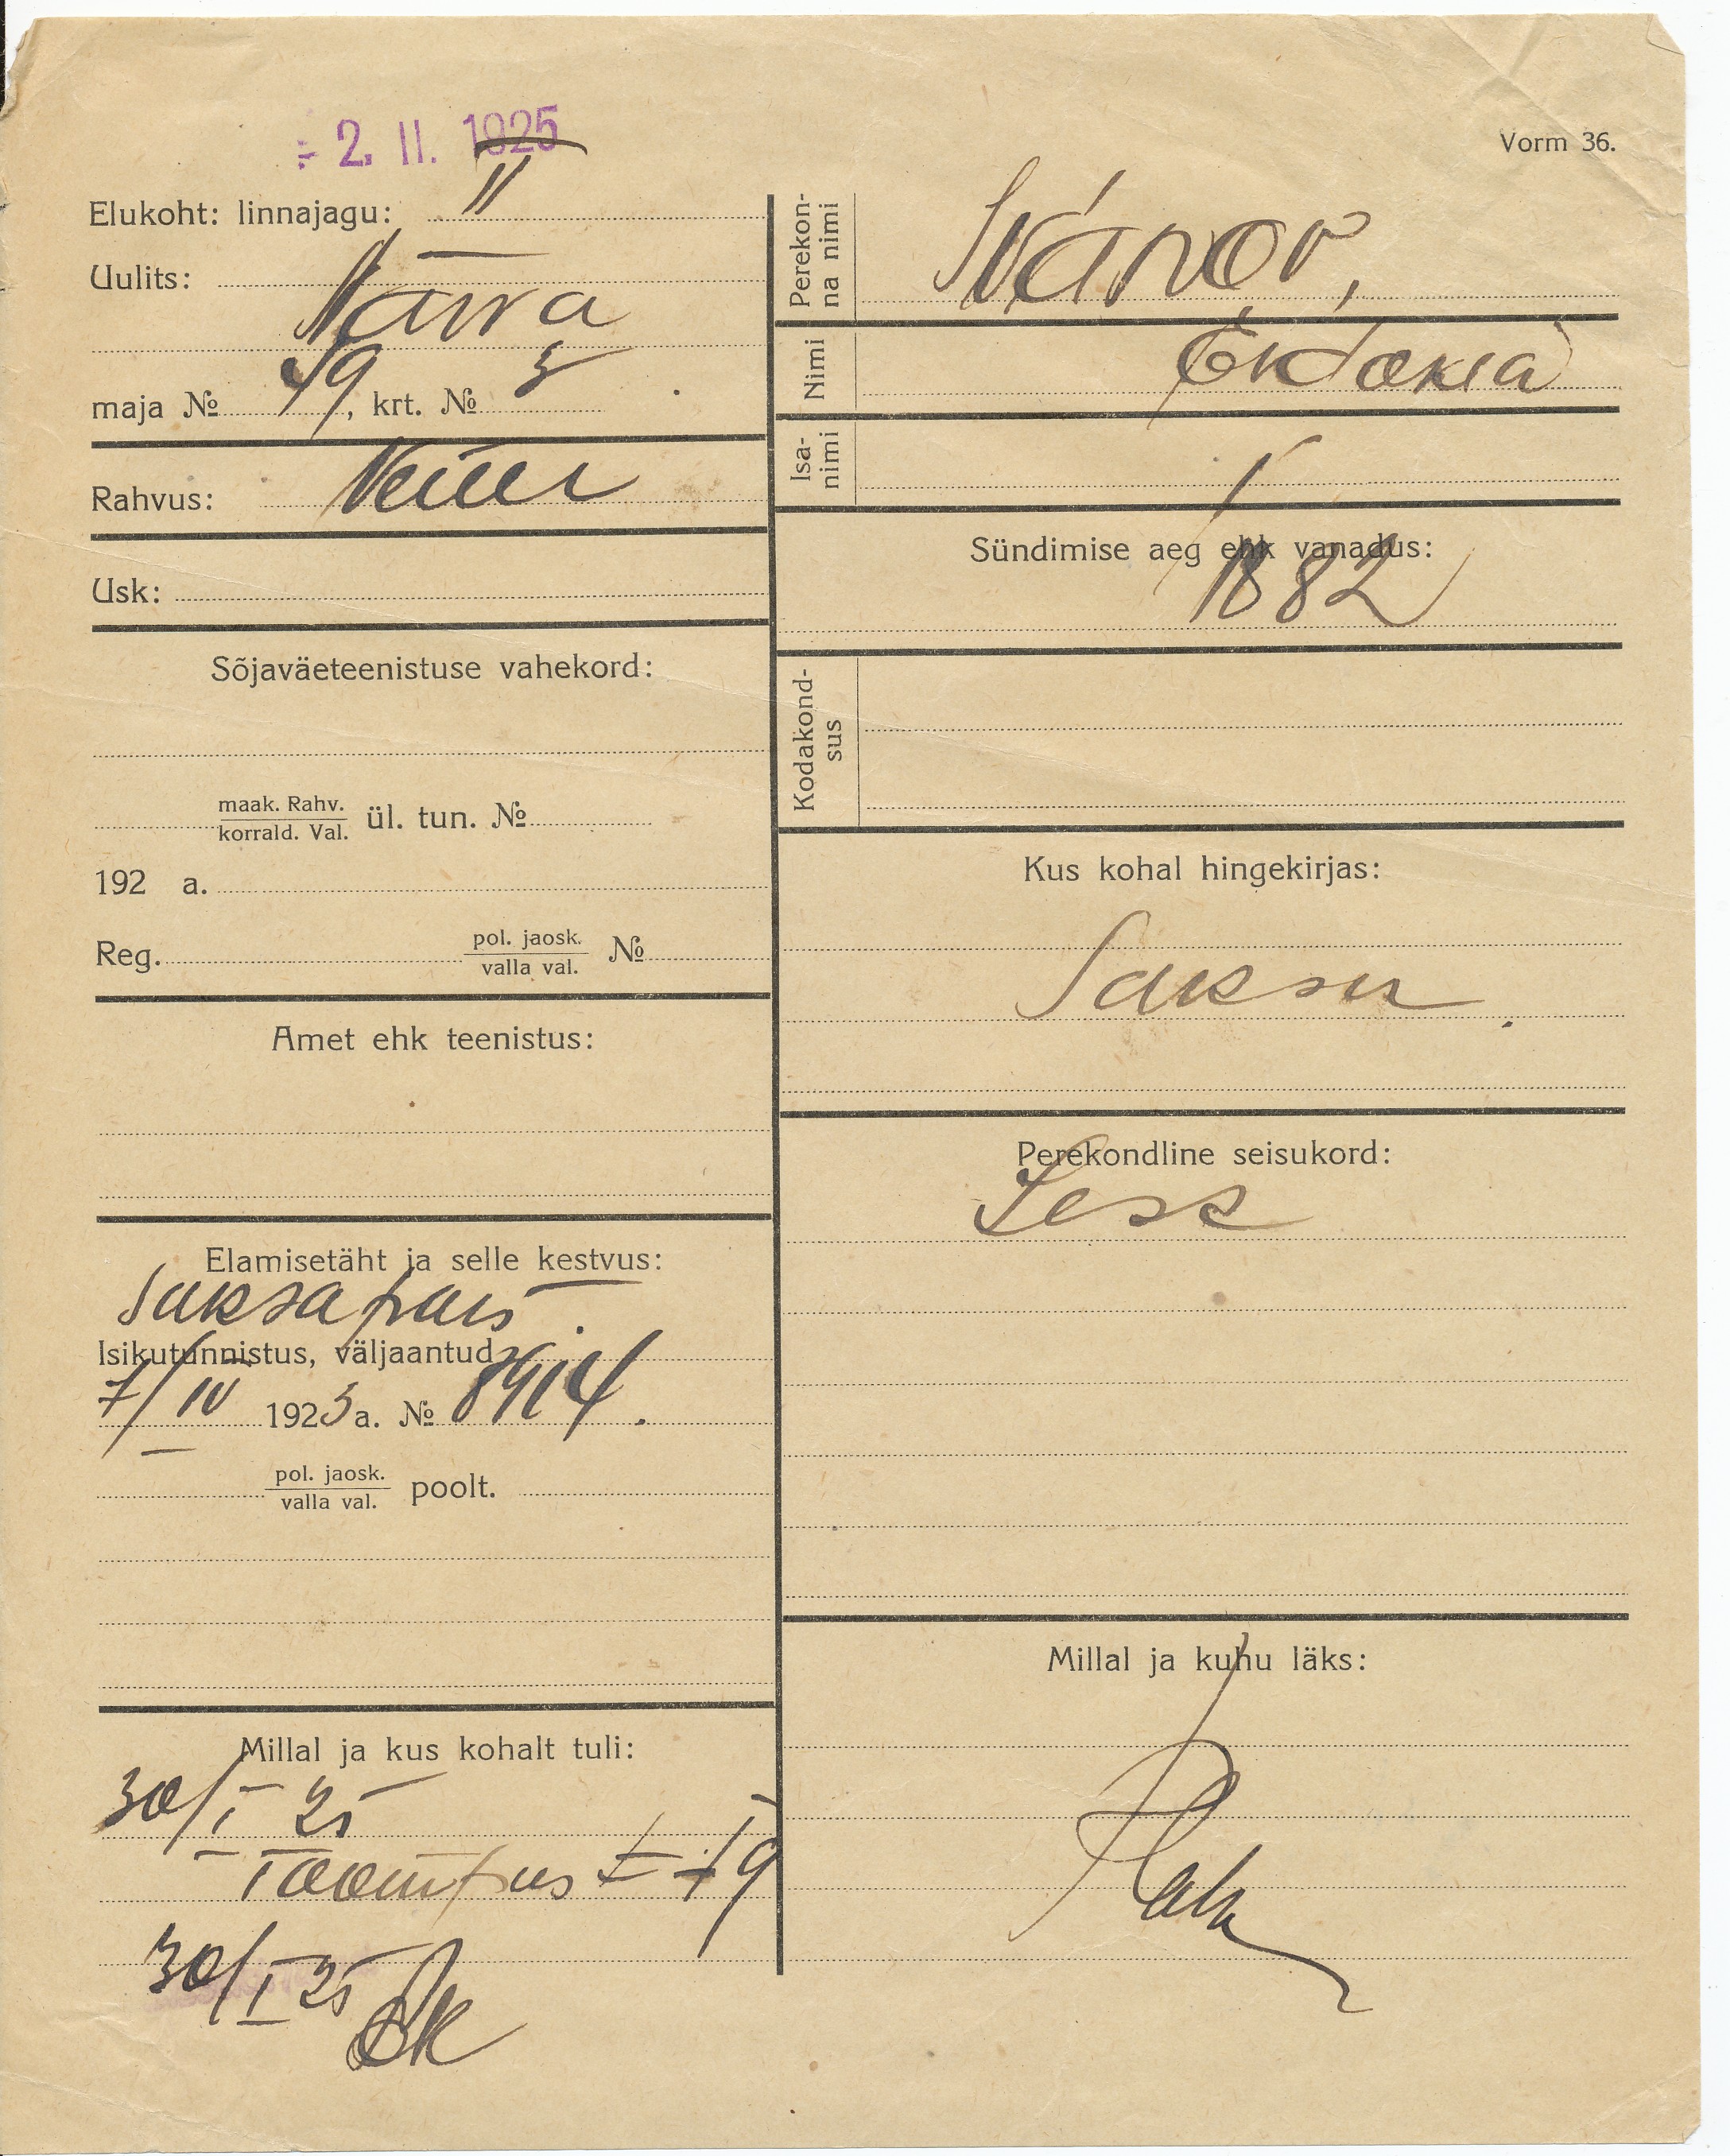 ÷ 2. II. 1925
Vorm 36.
Elukoht: linnajagu: II
Uulits: Narva
maja № 49, krt. № 3
Rahvus: Vene
Usk:
Sõjaväeteenistuse vahekord:
maak. Rahv.
korrald. Val. ül. tun. №
192 a.
Reg. pol. jaosk.
valla val. №
Amet ehk teenistus:
Elamisetäht ja selle kestvus:
Saksa pass.
Isikutunnistus, väljaantud
7/IV 1923 a. № 8914.
pol. jaosk.
valla val. poolt.
Millal ja kus kohalt tuli:
30/I 25
Toompus t 19
30/I 25
Perekon-
na nimi Ivanov,
Nimi Evdokia
Isa-
nimi
Sündimise aeg ehk vanadus:
1882
Kodakond-
sus
Kus kohal hingekirjas:
Saksa.
Perekondline seisukord:
Lesk
Millal ja kuhu läks: